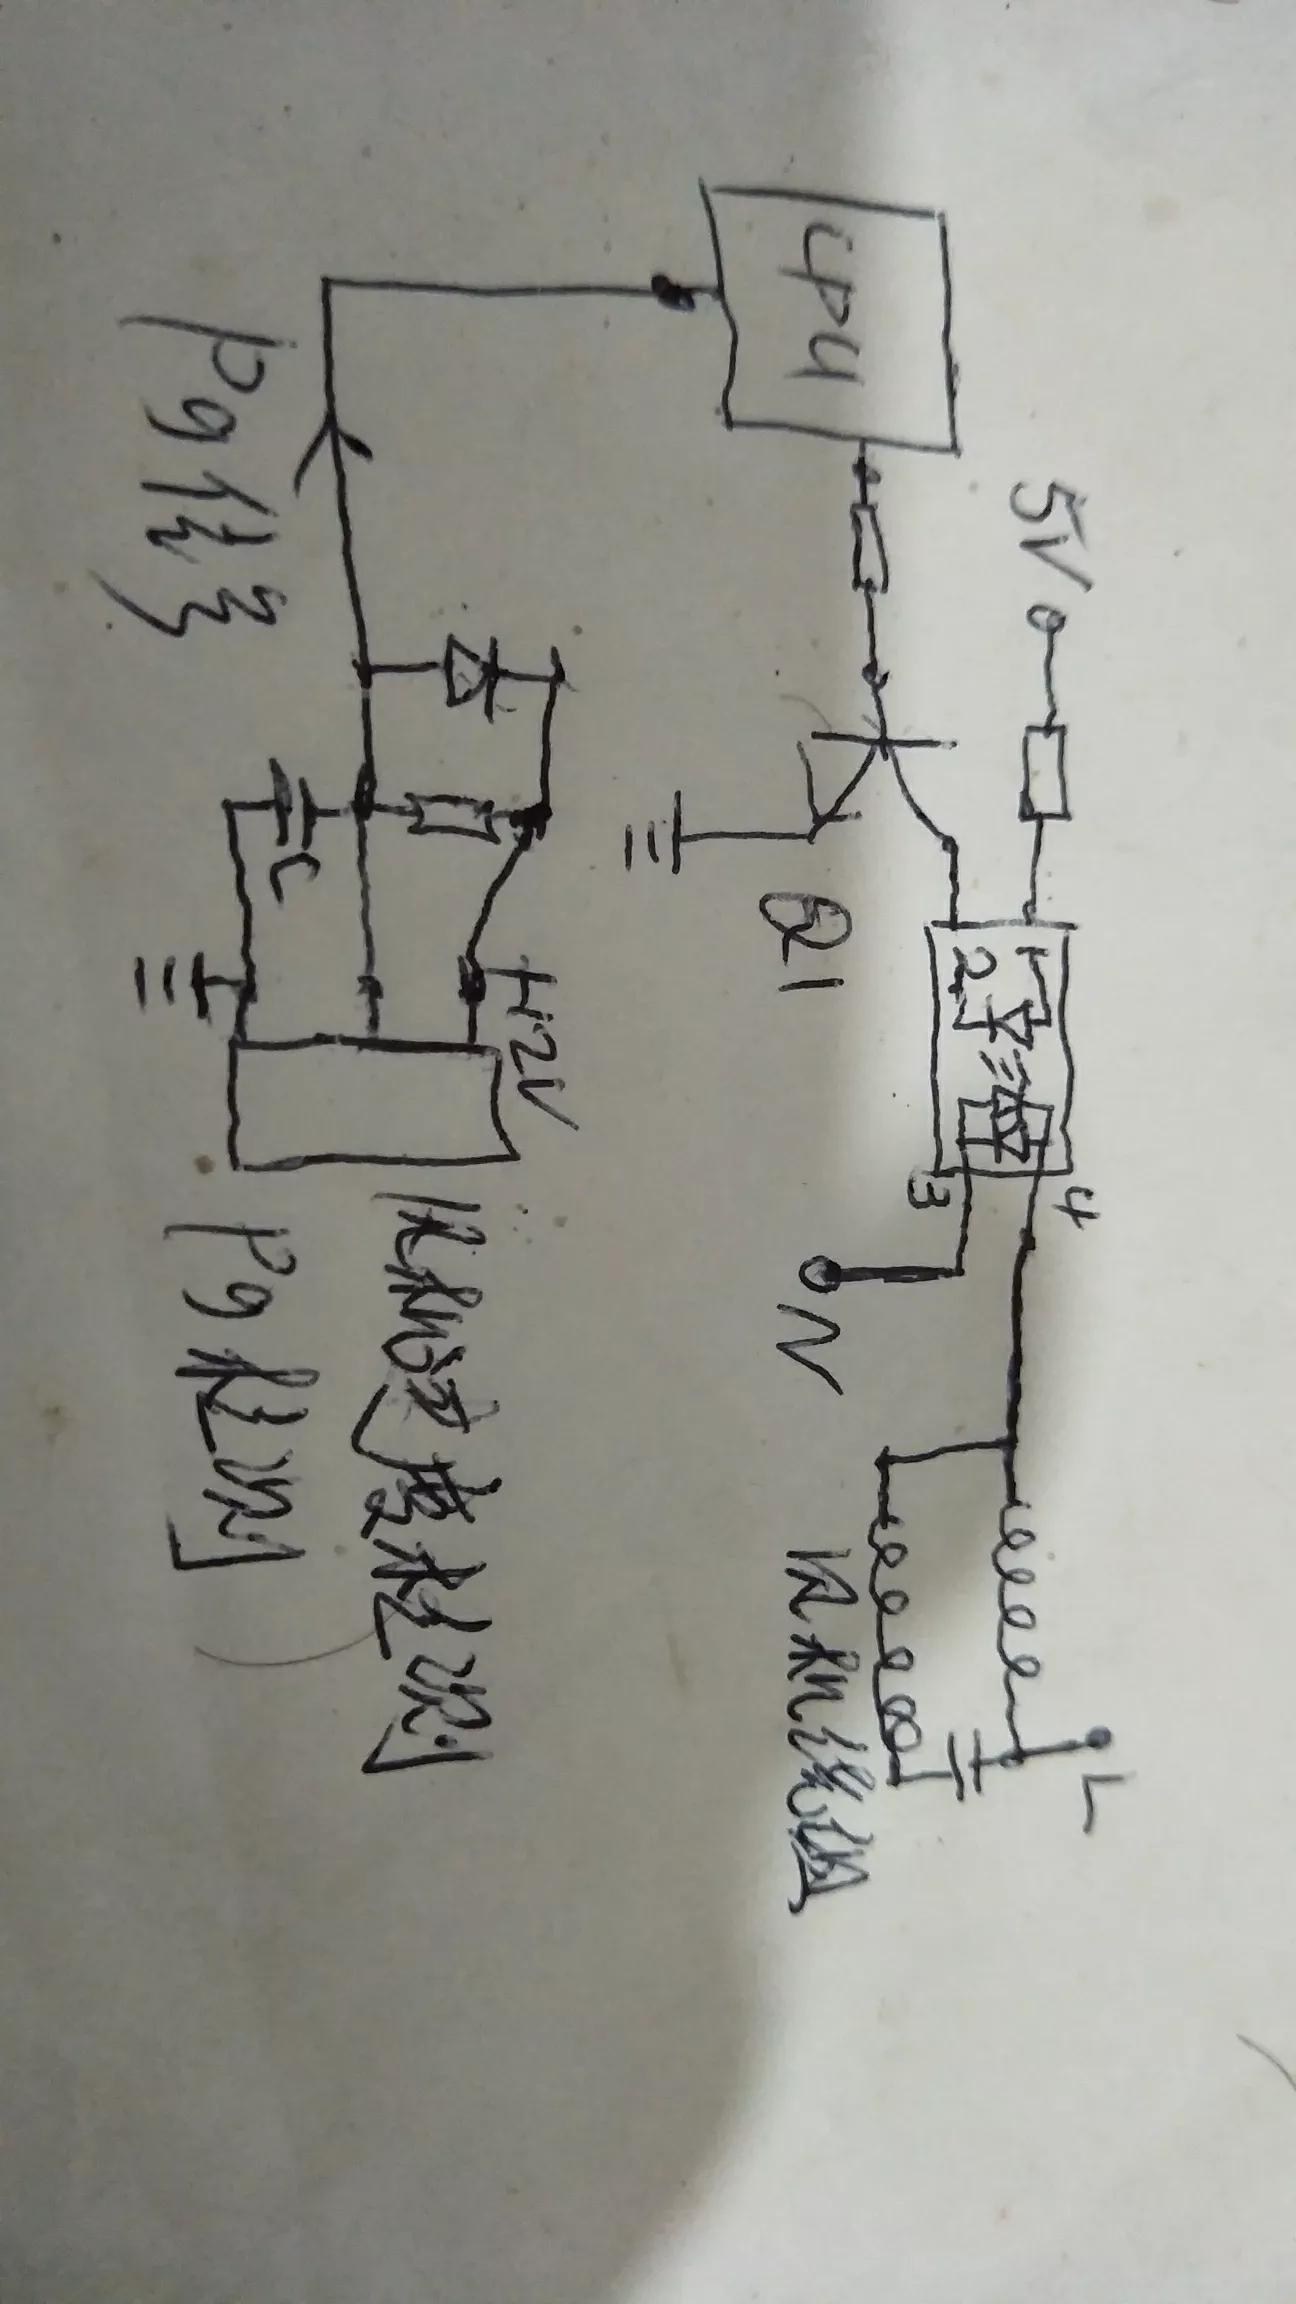 5V
L
4
1
2
3
CPU
N
风机绕组
Q1
+12V
风机速度检测
C
Pg信号
Pg检测